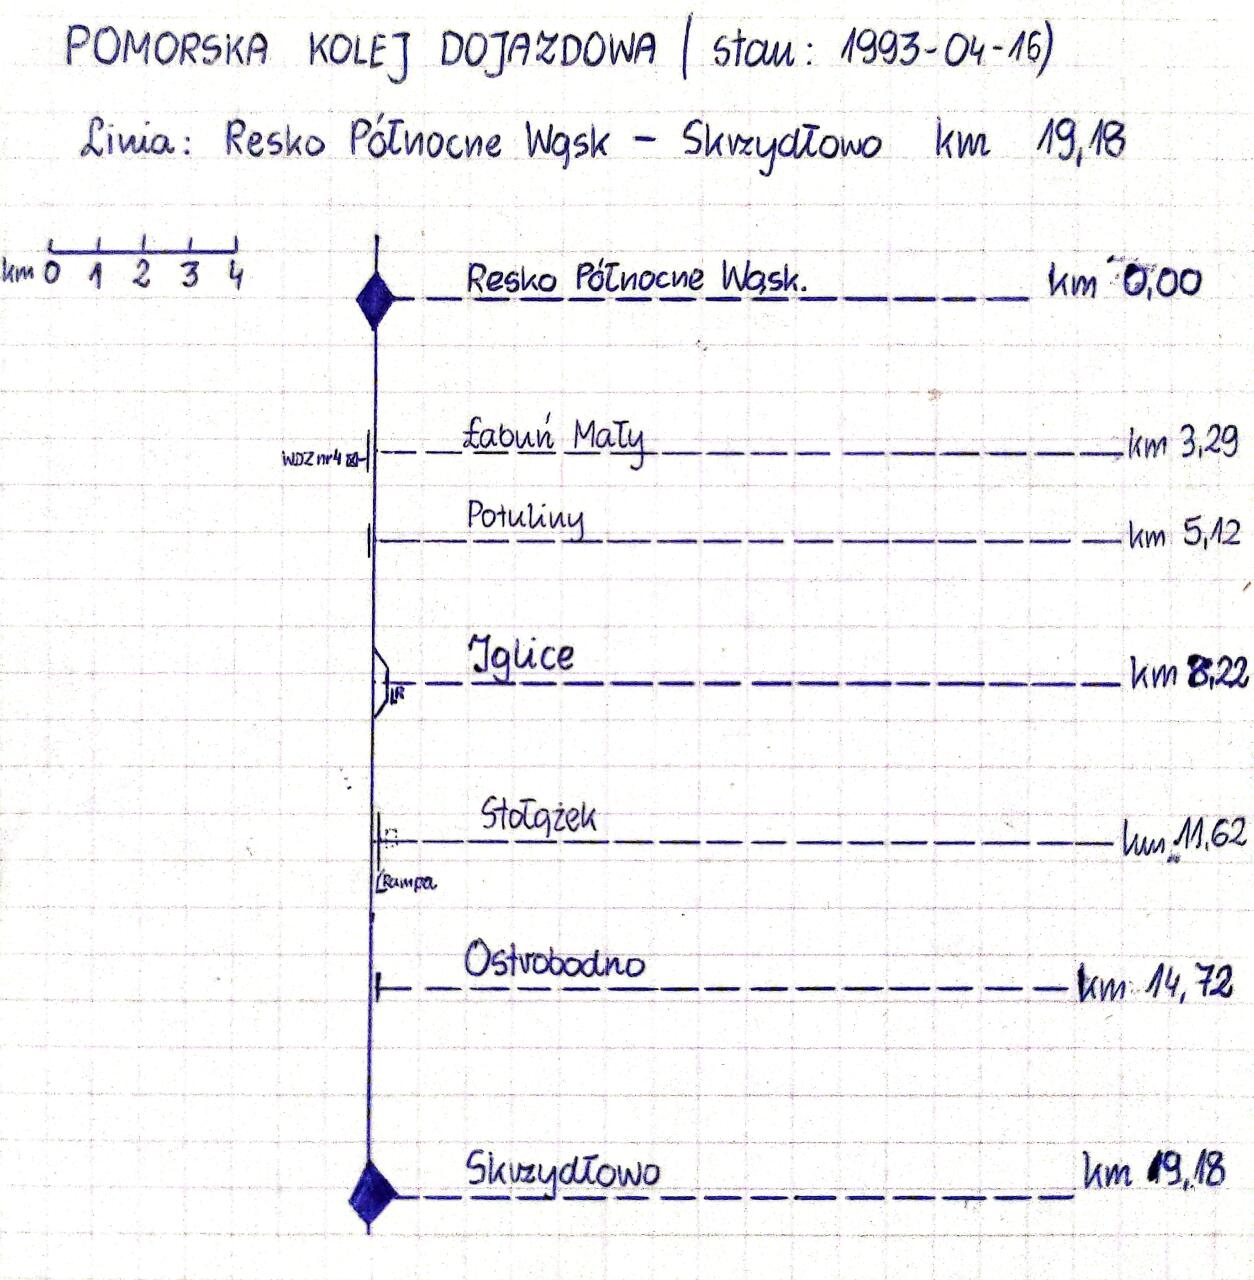 POMORSKA KOLEJ DOJAZDOWA (stan: 1993-04-16)
Linia: Resko Północne Wąsk - Skrzydłowo km 19,18
km 0 1 2 3 4
Resko Północne Wąsk. km 0,00
Łabuń Mały km 3,29
WDZ nr 4
Potuliny km 5,12
Iglice km 8,22
R
Stołążek km 11,62
Rampa
Ostrobodno km 14,72
Skrzydłowo km 19,18